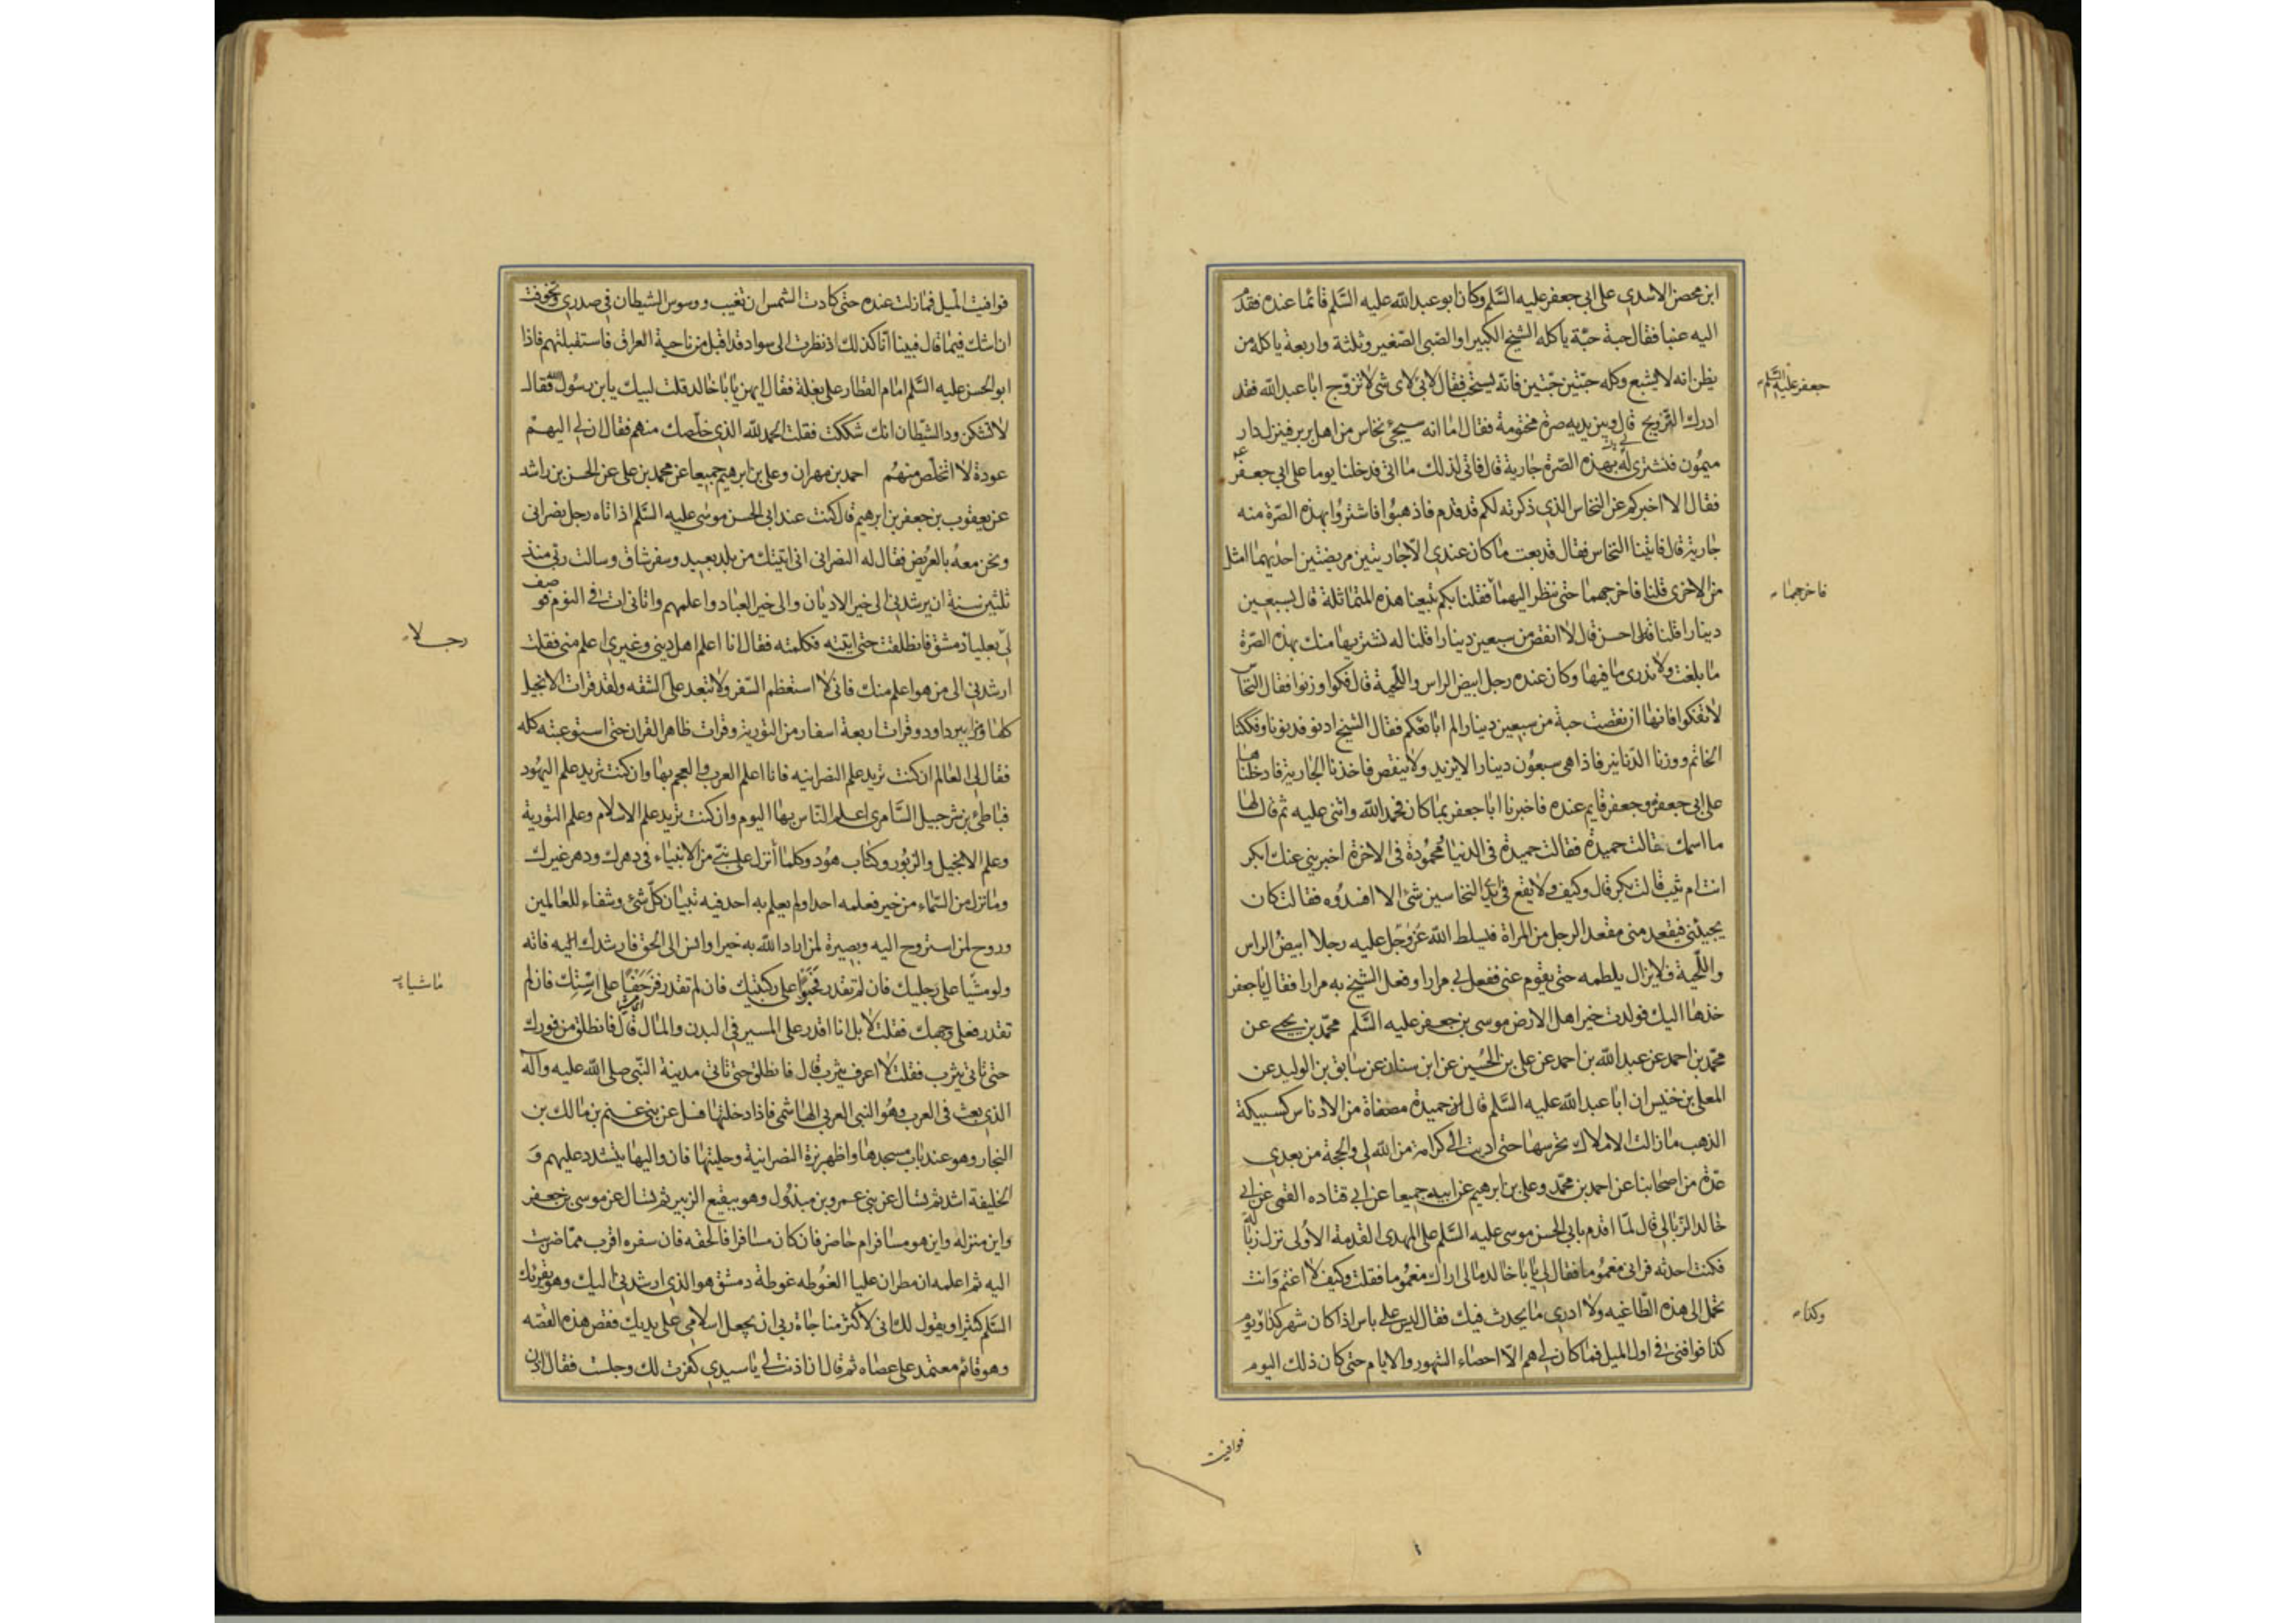 ابن محصن الاسدي على ابي جعفر عليه السَّلم وكان ابو عبد الله عليه السَّلم قائما عنده فقدّم
اليه عنبا فقال حبة حبّة ياكله الشيخ الكبير او الصّبى الصّغير وثلثة واربعة ياكله من
يظن انه لا يشبع وكله حبّتين حبّتين فانّه يستحبّ فقال لابي لاى شى لا تزوّج ابا عبد الله فقد
جعفر عليه السَّلم
ادرك التّزويج قال وبين يديه صرة مختومة فقال اما انه سيجئ نخاس من اهل بربر فينزل دار
ميمُون فنشترى له بهذه الصّرة جارية قال فاتى لذلك ما اتى فدخلنا يوما على ابي جعفر
فقال الا اخبركم عن النخاس الذي ذكرته لكم قد قدم فاذهبُوا فاشتروا بهذه الصّرة منه
جارية قال فاتينا النخاس فقال قد بعت ما كان عندي الا جاريتين مريضتين احديهما امثل
من الاخرى قلنا فاخرجهما حتى ننظر اليهما فقلنا بكم تبيعنا هذه المتماثلة قال بسبعين
فاخرجهما
دينارا قلنا احسن قال لا انقص من سبعين دينارا قلنا له نشتريها منك بهذه الصّرة
ما بلغت ولا ندرى ما فيها وكان عنده رجل ابيض الراس واللّحية قال فكوا وزنوا فقال النخاس
لا تفكوا فانها ان نقصت حبة من سبعين دينارا لم ابايعكم فقال الشيخ ادنو فدنونا وفككنا
الخاتم ووزنا الدّنانير فاذا هى سبعُون دينارا لا يزيد ولا ينقص فاخذنا الجارية فادخلناها
على ابى جعفر وجعفر قايم عنده فاخبرنا ابا جعفر بما كان فحمد الله واثنى عليه ثم قال لها
ما اسمك قالت حميدة فقال حميدة فى الدنيا محمُودة فى الاخرة اخبرينى عنك ابكر
انت ام ثيب قالت بكر قال وكيف ولا يقع فى يد النخاسين شئ الا افسدُوه فقالت كان
يجيئنى فيقعد منى مقعد الرجل من المراة فيسلط الله عَزّ وجَل عليه رجلا ابيضُ الراس
واللّحية فلا يزال يلطمه حتى يقوم عنى ففعل بى مرارا وفعل الشيخ به مرارا فقال يا جعفر
خذها اليك فولدت خير اهل الارض موسى بن جعفر عليه السَّلم محمّد بن يحيى عن
محمّد بن احمد عن عبد الله بن احمد عن على بن الحُسين عن ابن سنان عن سابق بن الوليد عن
المعلى بن خنيس ان ابا عبد الله عليه السَّلم قال حميدة مصفاة من الادناس كسبيكة
الذهب ما زالت الاملاك تحرسها حتى اديت الى كرامة من الله لى والحجة من بعدي
عدّة من اصحابنا عن احمد بن محمّد وعلى بن ابرهيم عن ابيه جميعا عن ابى قتاده القمى عن ابى
خالد الزّبالى قال لمّا اقدم بابى الحسن موسى عليه السَّلم على المهدى القدمة الاُولى نزل زبالة
فكنت احدثه فرانى مغمُوما فقال لى يا با خالد مالى اراك مغمُوما فقلت وكيف لا اغتم وَانت
تحمل الى هذه الطّاغيه ولا ادرى ما يحدث فيك فقال ليس على باس اذا كان شهر كذا ويوم
وكذا
كذا فوافنى فى اول الميل فما كان لى هم الّا احصاء الشهور والايام حتى كان ذلك اليوم
فوافيت
فوافيت الميل فما زلت عنده حتى كادت الشمس ان تغيب ووسوس الشيطان فى صدرى وتخوفت
ان اشك فيما قال فبينا انا كذلك اذ نظرت الى سواد قد اقبل من ناحية العراق فاستقبلتهم فاذا
ابو الحسن عليه السَّلم امام القطار على بغلة فقال ايهن يا با خالد قلت لبيك يا بن رسُول الله فقال
لا تشكن ود الشّيطان انك شككت فقلت الحمد لله الذي خلّصك منهم فقال ان لى اليهم
عودة لا اتخلّص منهُم احمد بن مهران وعلى بن ابرهيم جميعا عن محمد بن على عن الحسن بن راشد
عن يعقوب بن جعفر بن ابرهيم قال كنت عند ابى الحسن موسى عليه السَّلم اذ اتاه رجل نصرانى
ونحن معهُ بالعُريض فقال له النصرانى انى اتيتك من بلد بعيد وسفر شاق وسالت ربّى منذ
ثلثين سنة ان يرشدنى الى خير الاديان والى خير العباد واعلمهم واتانى ات فى النوم فوصف
لى بعليا دمشق فانطلقت حتى اتيته فكلمته فقال انا اعلم اهل دينى وغيرى اعلم منى فقلت
رجلا
ارشدنى الى من هو اعلم منك فانى لا استعظم السّفر ولا تبعد علىّ الشقه ولقد قرات الانجيل
كلها ومزامير داود وقرات اربعة اسفار من التورية وقرات ظاهر القران حتى استوعبته كله
فقال لى العالم ان كنت تريد علم النصرانيه فانا اعلم العرب والعجم بها وان كنت تريد علم اليهُود
فباطئ بن شرجيل السَّامرى اعلم النّاس بها اليوم وان كنت تريد علم الاسلام وعلم التورية
وعلم الانجيل والزبُور وكتاب هُود وكلما اُنزل على نبىّ من الانبياء فى دهرك ودهر غيرك
وما نزل من السّماء من خير فعلمه احد او لم يعلم به احد فيه تبيان كلّ شئ وشفاء للعالمين
وروح لمن استروح اليه وبصيرة لمن اراد الله به خيرا وانس الى الحق فارشدك اليه فاته
ولو مشيا على رجليك فان لم تقدر فحبوا على ركبتيك فان لم تقدر فزحفا على اِسْتِك فان لم
ماشياء
تقدر فعلى وجهك فقلت لا بل انا اقدر على المسير فى البدن والمال قال فانطلق من فورك
حتى تاتى يثرب فقلت لا اعرف يثرب قال فانطلق حتى تاتى مدينة النّبى صلى الله عليه وآله
الذي بعث فى العرب وهُو النبى العربى الهاشمى فاذا دخلتها فسل عن بنى غنم بن مالك بن
النجار وهو عند باب مسجدها واظهر بزة النصرانية وحليتها فان واليها يتشدد عليهم وَ
الخليفة اشد ثم تسال عن بنى عمرو بن مبذُول وهو ببقيع الزبير ثم تسال عن موسى بن جعفر
واين منزله واين هو مسافر ام حاضر فان كان مسافرا فالحقه فان سفره اقرب ممّا ضربت
اليه ثم اعلمه ان مطران عليا الغُوطه غوطة دمشق هو الذي ارشدنى اليك وهو يقرئك
السَّلم كثيرا ويقول لك انى لاكثر مناجاة ربى ان يجعل اسلامى على يديك فقص هذه القصّه
وهو قائم معتمد على عصاه ثم قال ان اذنت لى يا سيدي كفرت لك وجلست فقال اذن